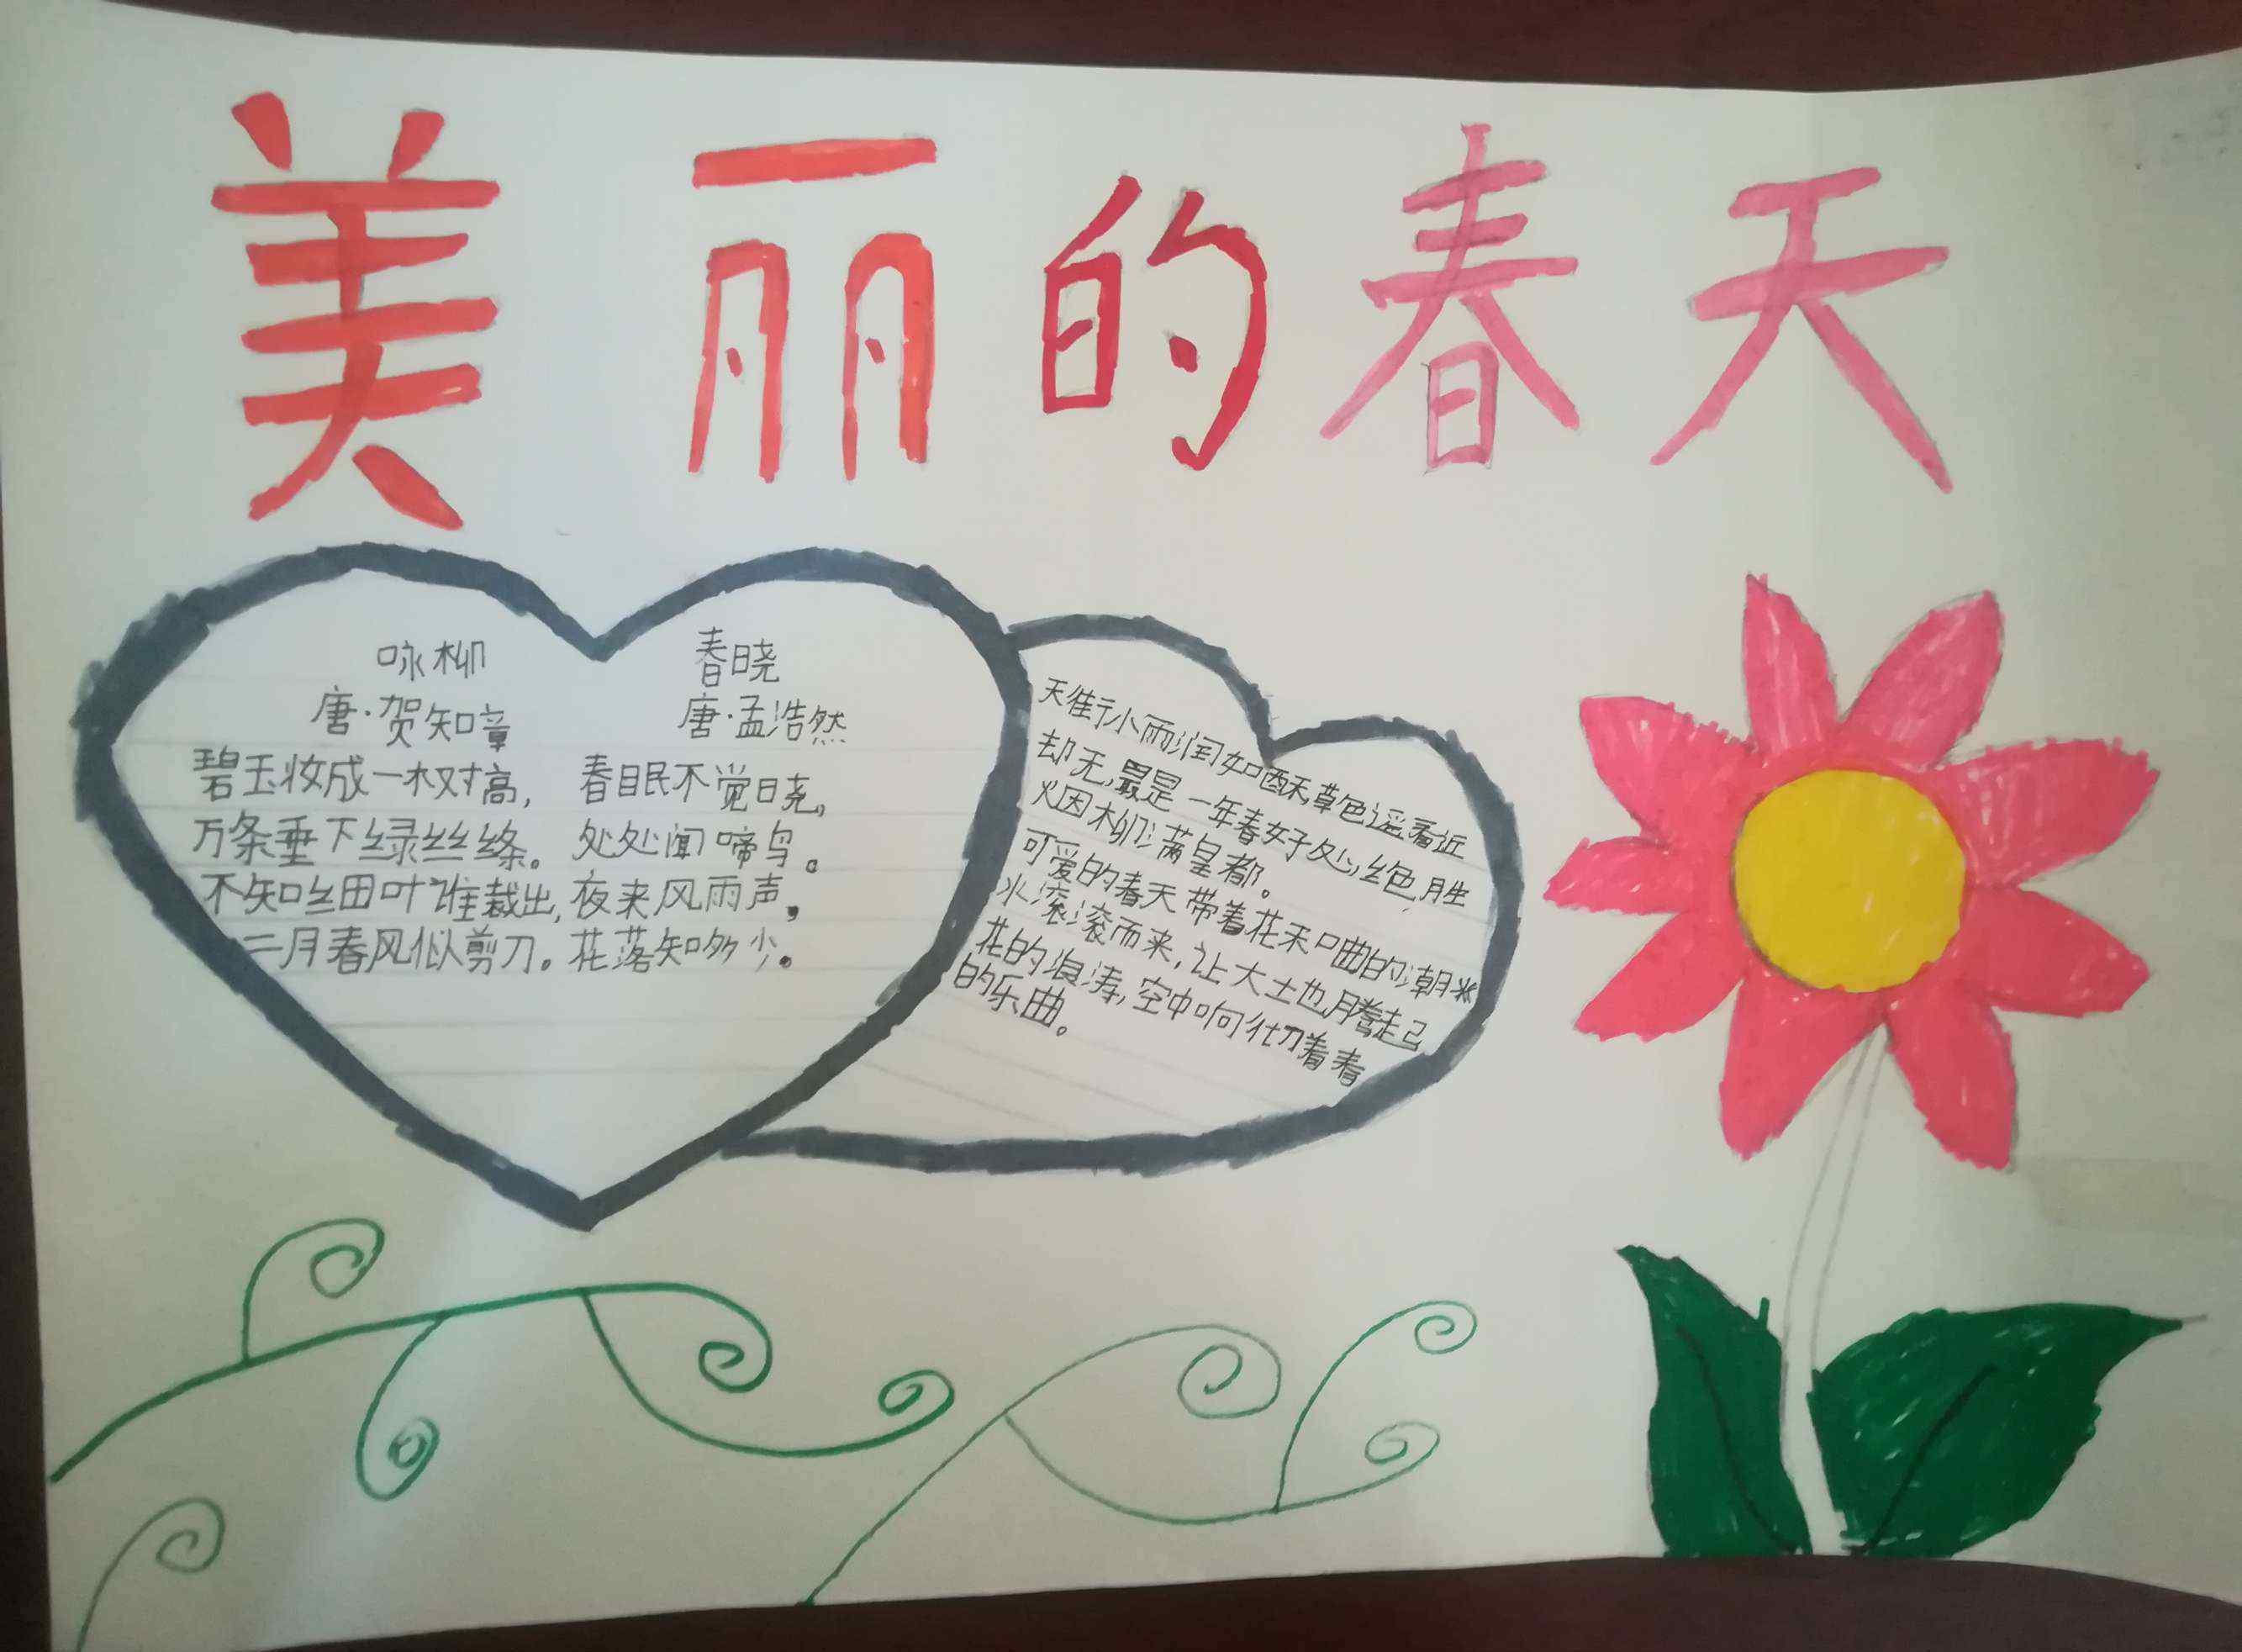 美丽的春天
咏柳
唐·贺知章
碧玉妆成一树高,
万条垂下绿丝绦。
不知细叶谁裁出,
二月春风似剪刀。
春晓
唐·孟浩然
春眠不觉晓,
处处闻啼鸟。
夜来风雨声,
花落知多少。
天街小雨润如酥,草色遥看近
却无,最是一年春好处,绝胜
烟柳满皇都。
可爱的春天带着花和曲的潮水
滚滚而来,让大土也腾起
花的浪涛,空中响彻着春
的乐曲。